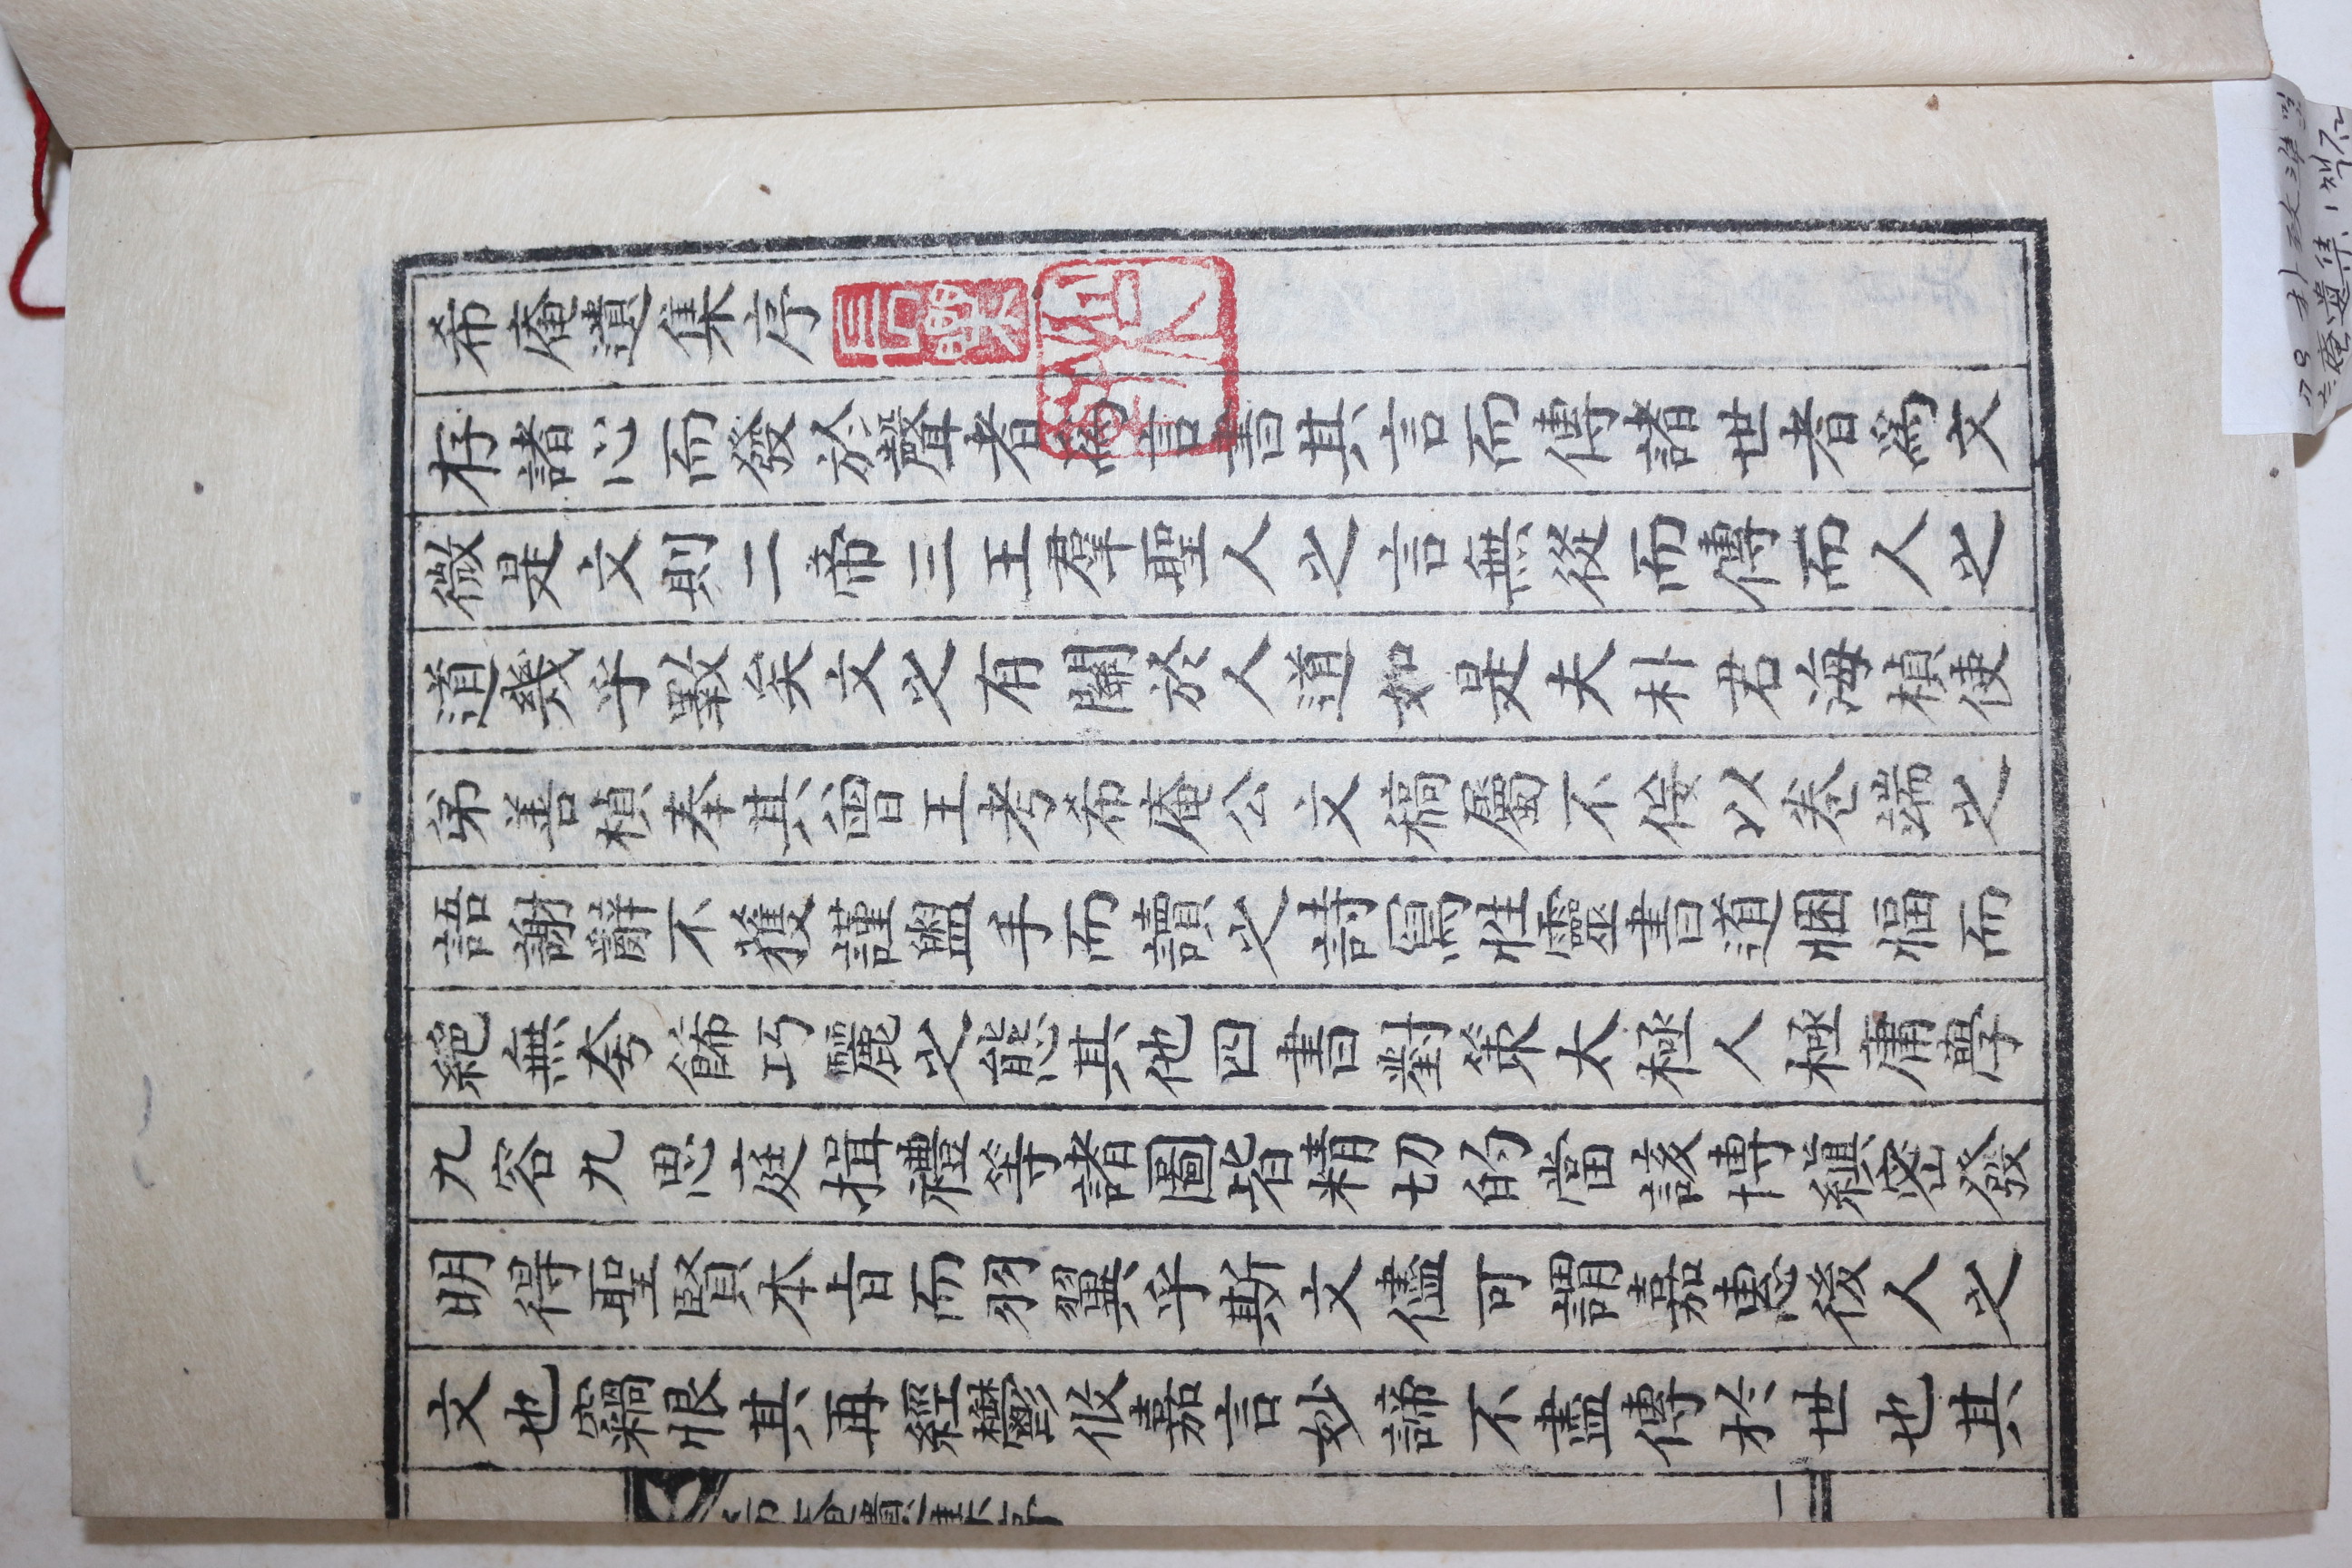 希庵遺集序
存諸心而發於聲者爲言書其言而傳諸世者爲文
微是文則二帝三王羣聖人之言無從而傳而人之
道幾乎斁矣文之有關於人道如是夫朴君海楨使
弟善楨奉其曾王考希庵公文稿屬不佞以卷端之
語謝辭不獲謹盥手而讀之詩寫性靈書道悃愊而
絶無夸餙巧麗之態其他四書對策太極人極庸學
九容九思庭揖禮等諸圖皆精切的當該博縝密發
明得聖賢本旨而羽翼乎斯文儘可謂嘉惠後人之
文也竊恨其再經鬱攸嘉言妙諦不盡傳於世也其
希庵遺集序
一
庵遺集 1책